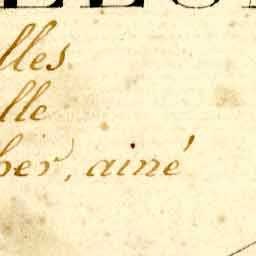 lles
lle
her, ainé